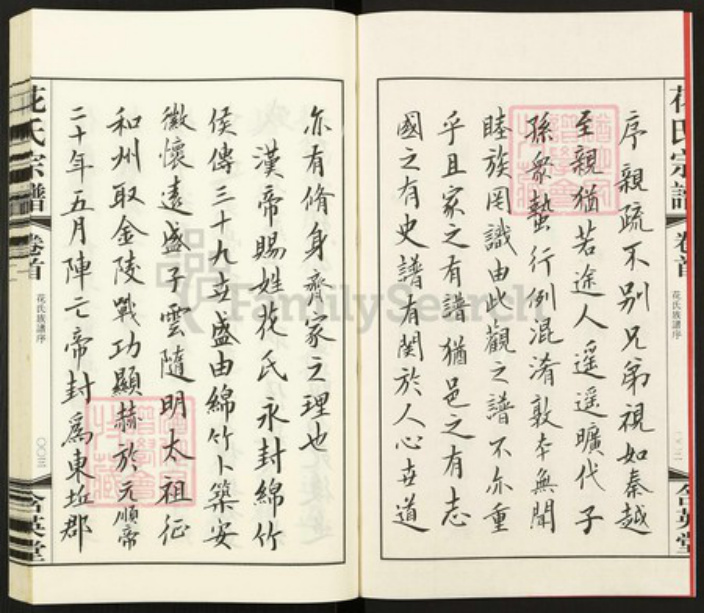 花氏宗譜
卷首
花氏族譜序
含英堂
序親疏不別兄弟視如秦越
至親猶若途人遥遥曠代子
孫衆蟄行例混淆敦本無聞
睦族罔識由此觀之譜不亦重
乎且家之有譜猶邑之有志
國之有史譜有関於人心世道
亦有脩身齊家之理也
漢帝賜姓花氏永封綿竹
侯傳三十九立盛由綿竹卜築安
徽懷遠盛子雲隨明太祖征
和州取金陵戰功顯赫於元順帝
二十年五月陣亡帝封爲東丘郡
花氏宗譜
卷首
花氏族譜序
〇〇三
含英堂
FamilySearch